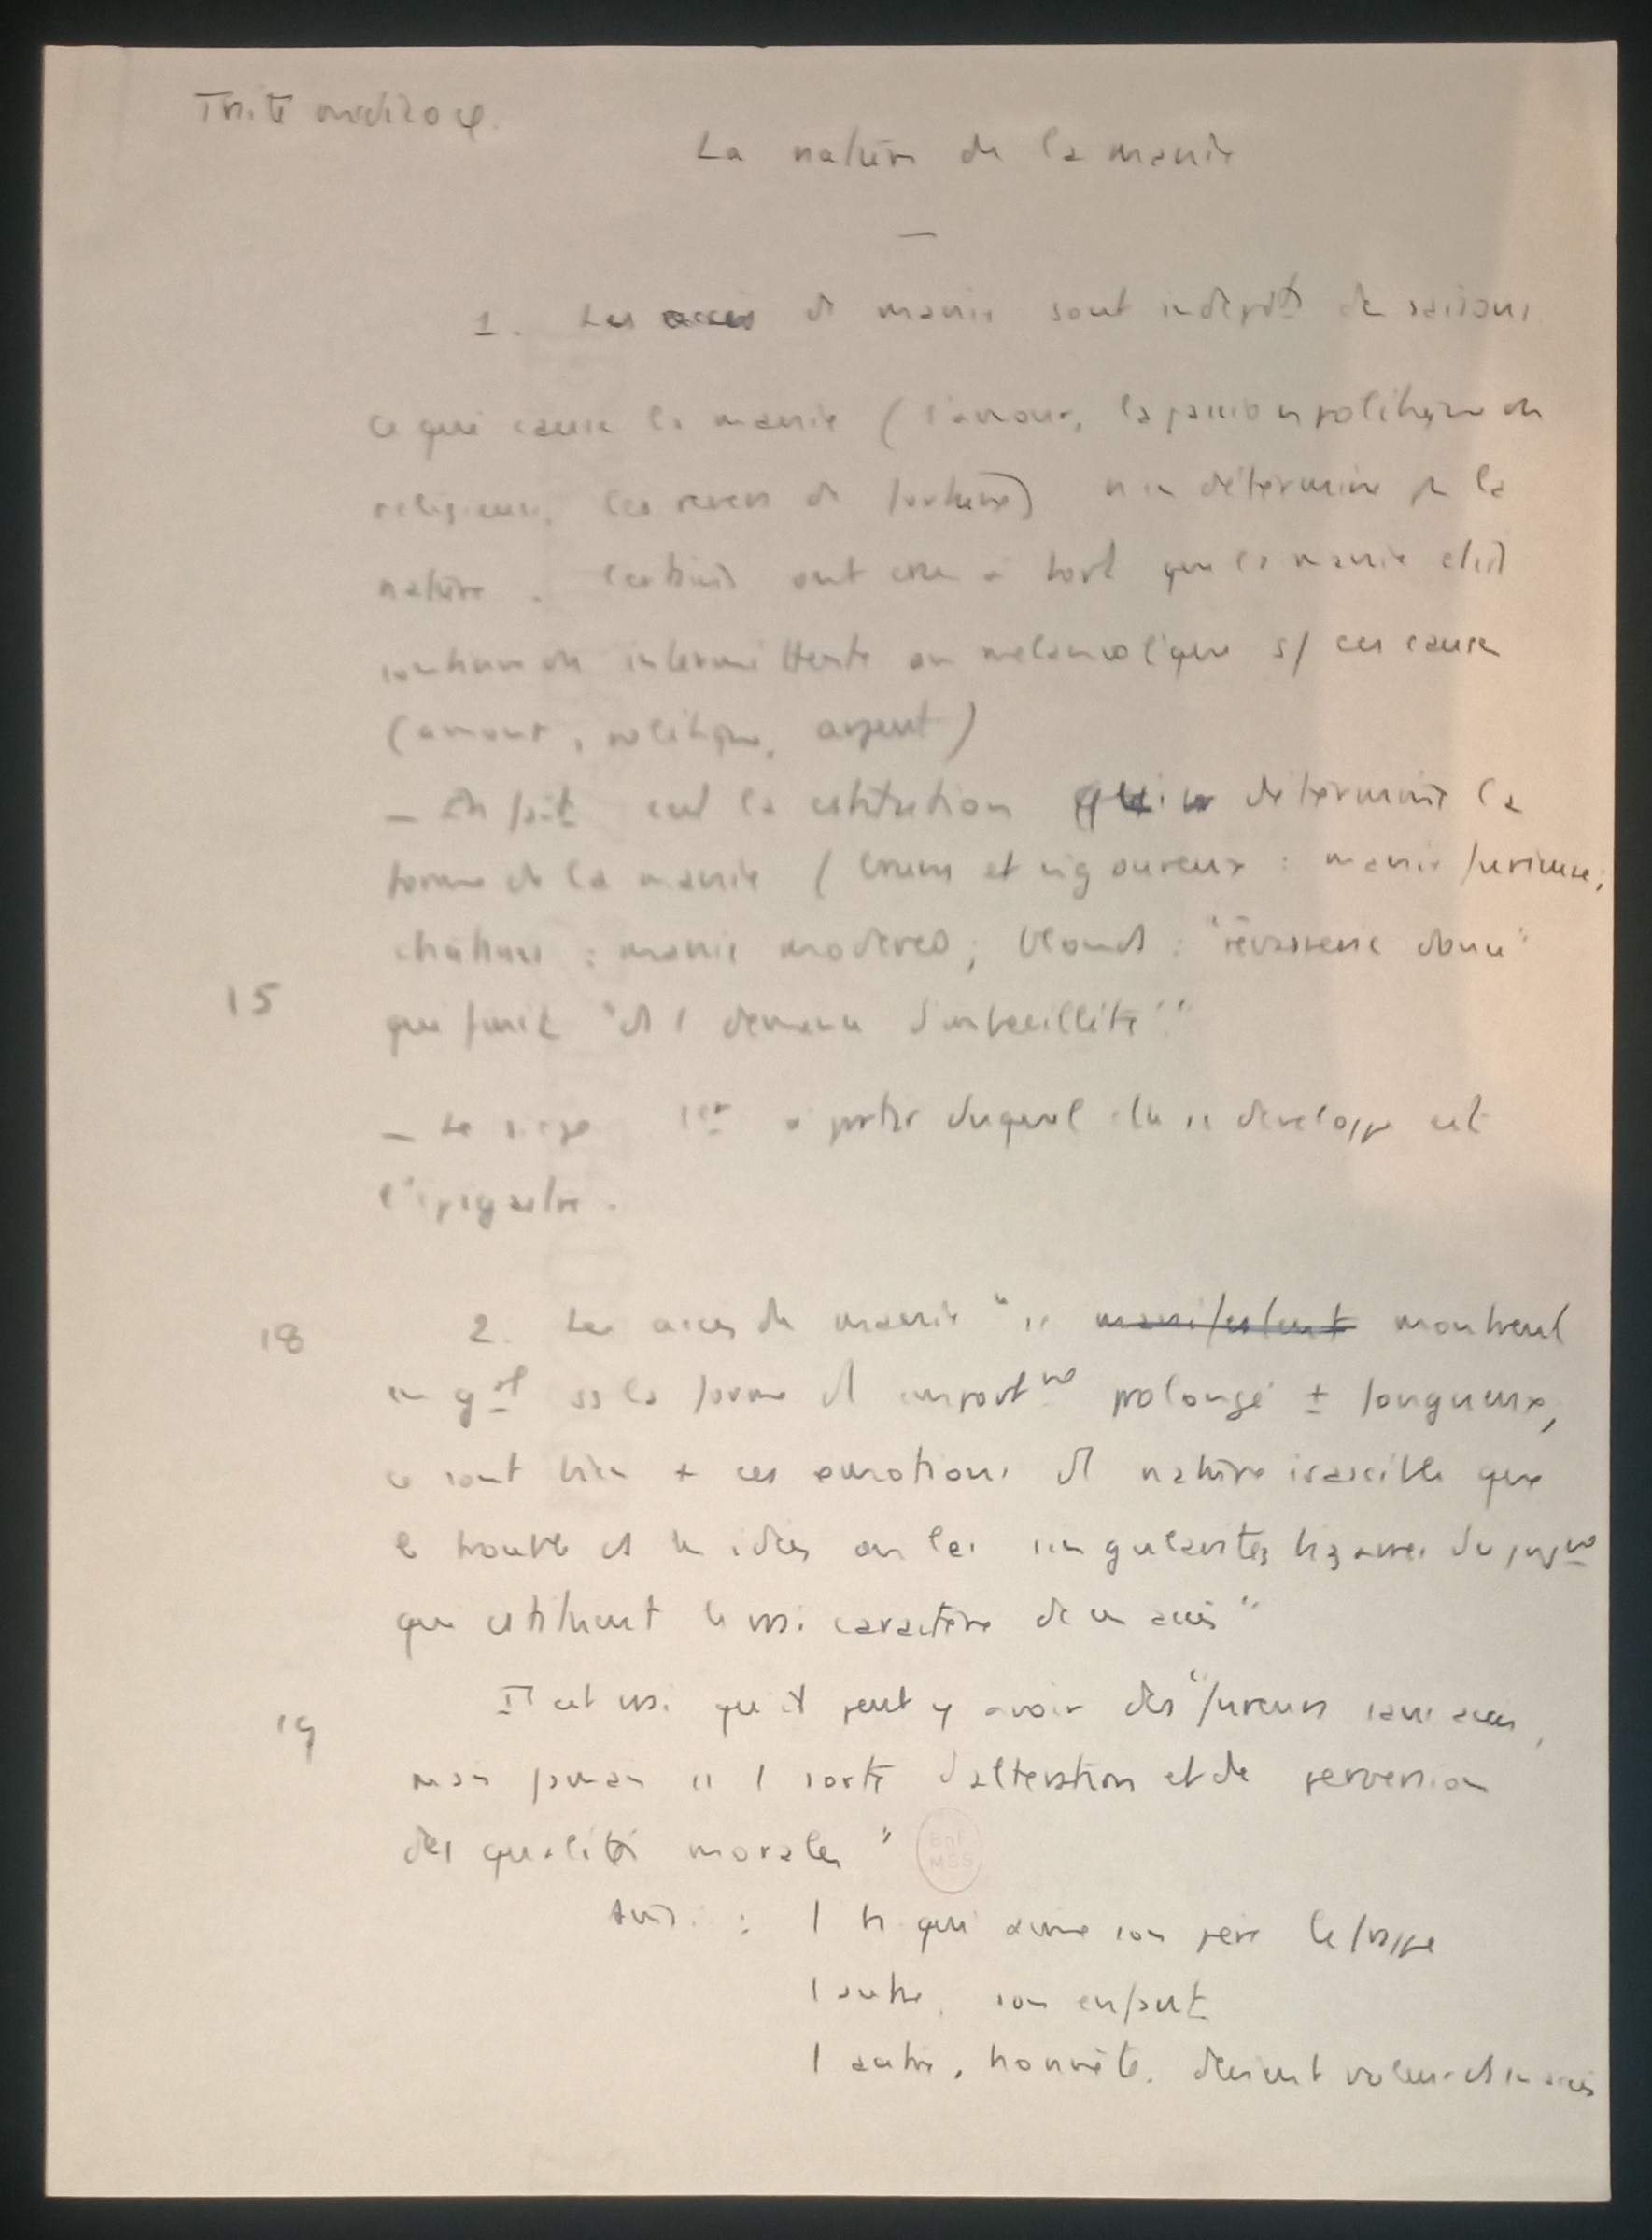 Traité médico φ.
La nature de la manie
—
1. Les accès de manie sont indépdts de saisons
ce qui cause la manie (l'amour, la passion politique ou
religieuse, les revers de fortune) n'en détermine pr la
nature. Certains ont cru à tort que la manie était
continue ou intermittente ou mélancolique s/ ces causes
(amour, politique, argent)
— En fait c'est la cstitution qui détermine la
forme de la manie (bruns et vigoureux : manie furieuse;
châtains : manie modérée; blonds : "rêvasserie douce"
15
qui finit "ds 1 démence d'imbécillité"
— Le siège 1er à partir duquel elle se développe est
l'épigastre.
18
2. Les accès de manie "se manifestent montrent
en gal ss la forme d'emportnt prolongé ± fougueux,
ce sont bien + ces émotions de nature irascible que
le trouble ds les idées ou les singularités bizarres du jugnt
qui cstituent le vrai caractère de ces accès"
19
Il est vrai qu'il peut y avoir des "fureurs sans accès,
mais jamais ss 1 sorte d'altération et de perversion
des qualités morales"
BnF
MSS
Ainsi : 1 h qui aime son père le frappe
1 autre, son enfant
1 autre, honnête, devient voleur ds ses accès